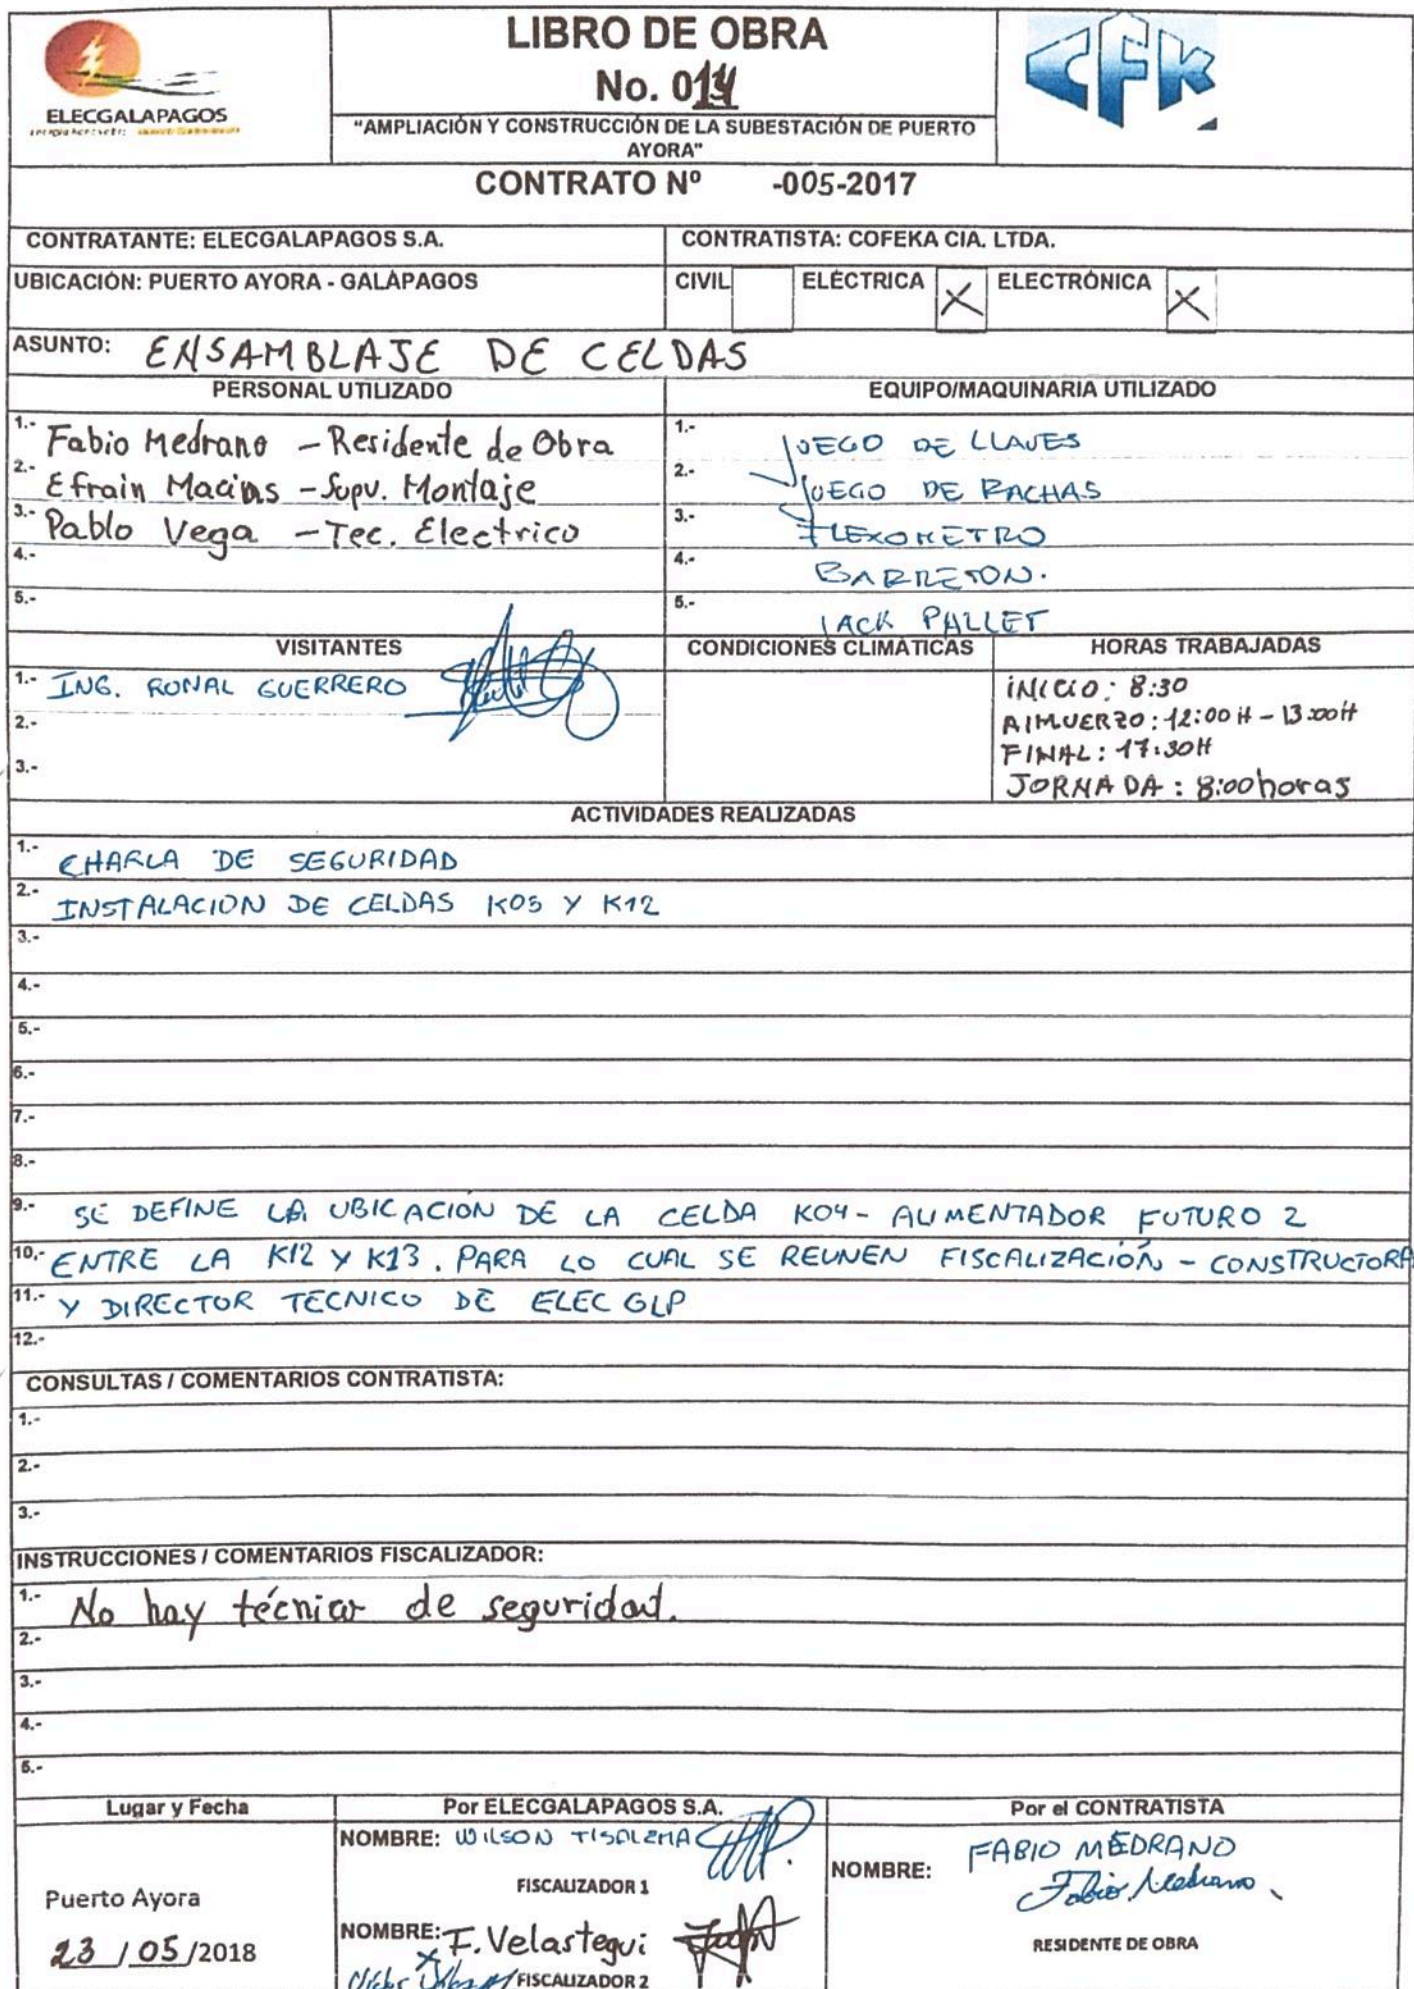 LIBRO DE OBRA
No. 014
ELECGALAPAGOS
CFK
"AMPLIACIÓN Y CONSTRUCCIÓN DE LA SUBESTACIÓN DE PUERTO
AYORA"
CONTRATO Nº -005-2017
CONTRATANTE: ELECGALAPAGOS S.A.
CONTRATISTA: COFEKA CIA. LTDA.
UBICACIÓN: PUERTO AYORA - GALÁPAGOS
CIVIL ELÉCTRICA X ELECTRÓNICA X
ASUNTO: ENSAMBLAJE DE CELDAS
PERSONAL UTILIZADO
1.- Fabio Medrano - Residente de Obra
2.- Efrain Macias - Supv. Montaje
3.- Pablo Vega - Tec. Electrico
4.-
5.-
EQUIPO/MAQUINARIA UTILIZADO
1.- JUEGO DE LLAVES
2.- JUEGO DE RACHAS
3.- FLEXOMETRO
4.- BARRETON.
5.- JACK PALLET
VISITANTES
1.- ING. RONAL GUERRERO
2.-
3.-
CONDICIONES CLIMÁTICAS
HORAS TRABAJADAS
INICIO: 8:30
AlMUERZO: 12:00 H - 13:00H
FINAL: 17:30H
JORNADA: 8:00 horas
ACTIVIDADES REALIZADAS
1.- CHARLA DE SEGURIDAD
2.- INSTALACION DE CELDAS K05 Y K12
3.-
4.-
5.-
6.-
7.-
8.-
9.- SE DEFINE LA UBICACION DE LA CELDA K04- ALIMENTADOR FUTURO 2
10,- ENTRE LA K12 Y K13. PARA LO CUAL SE REUNEN FISCALIZACIÓN - CONSTRUCTORA
11.- Y DIRECTOR TECNICO DE ELEC GLP
12.-
CONSULTAS / COMENTARIOS CONTRATISTA:
1.-
2.-
3.-
INSTRUCCIONES / COMENTARIOS FISCALIZADOR:
1.- No hay técnico de seguridad.
2.-
3.-
4.-
5.-
Lugar y Fecha
Puerto Ayora
23 / 05 /2018
Por ELECGALAPAGOS S.A.
NOMBRE: WILSON TISALEMA
FISCALIZADOR 1
NOMBRE: F. Velastegui
FISCALIZADOR 2
Por el CONTRATISTA
NOMBRE: FABIO MEDRANO
Fabio Medrano
RESIDENTE DE OBRA